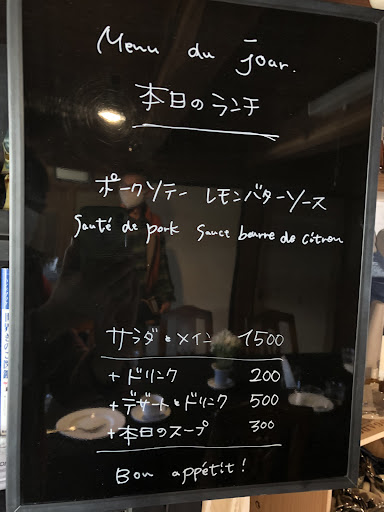 Menu du jour.
本日のランチ
ポークソテー レモンバターソース
Sauté de pork Sauce beurre de citron
サラダとメイン 1500
+ドリンク 200
+デザートとドリンク 500
+本日のスープ 300
Bon appétit!